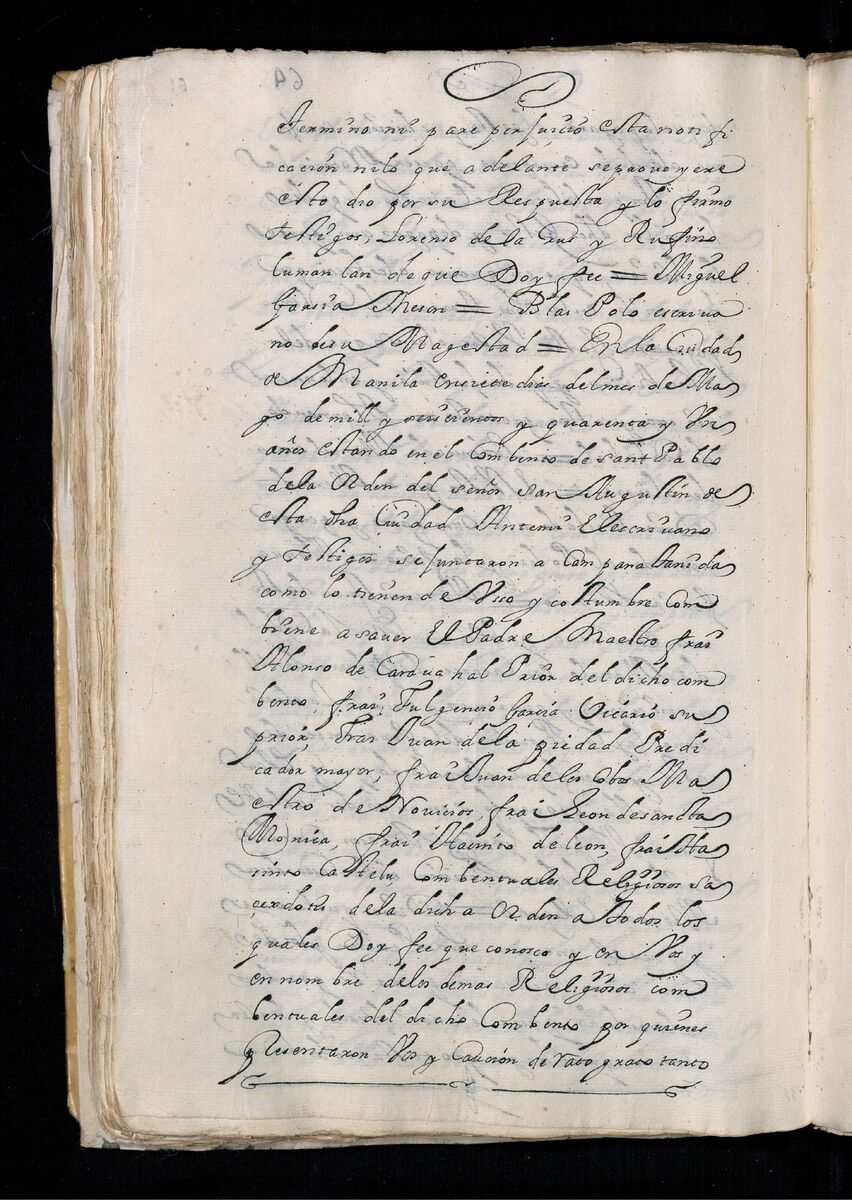 termino ni pare perjuicio esta noti fi
cación ni lo que adelante se proueyere
esto dio por su Respuesta y lo firmo
testigos, Lorenso de la Crus y Rufino
lumanlan de que Doy fee = Miguel
Garsia Meson = Blas Polo escriua
no de su Magestad = En la Ciudad
de Manila en siete dias del mes de Ma
yo de mill y seiscientos y quarenta y Un
años estando en el Combento de sant Pablo
de la Orden del señor san Augustin de
esta dha Ciudad Antemi El escriuano
y testigos se juntaron a Campana tanida
como lo tienen de Vsso y costumbre com
biene a sauer El Padre Maestro frai
Alonso de Carauahal Prior del dicho com
bento, frai Fulgencio garcia Vicario su
prior, frai Juan de la piedad Predi
cador mayor, frai Juan de los Obos Ma
estro de Novicios, frai Leon de sancta
Monica, frai Hacinto de leon, frai Ha
cinto Castelu, Combentuales Religiosos sa
çerdotes de la dicha Orden a todos los
quales Doy fee que conosco y en Vos y
en nombre de los demas Religiosos com
bentuales del dicho Combento por quienes
presentaron Vos y Caucion de rato grato tanto